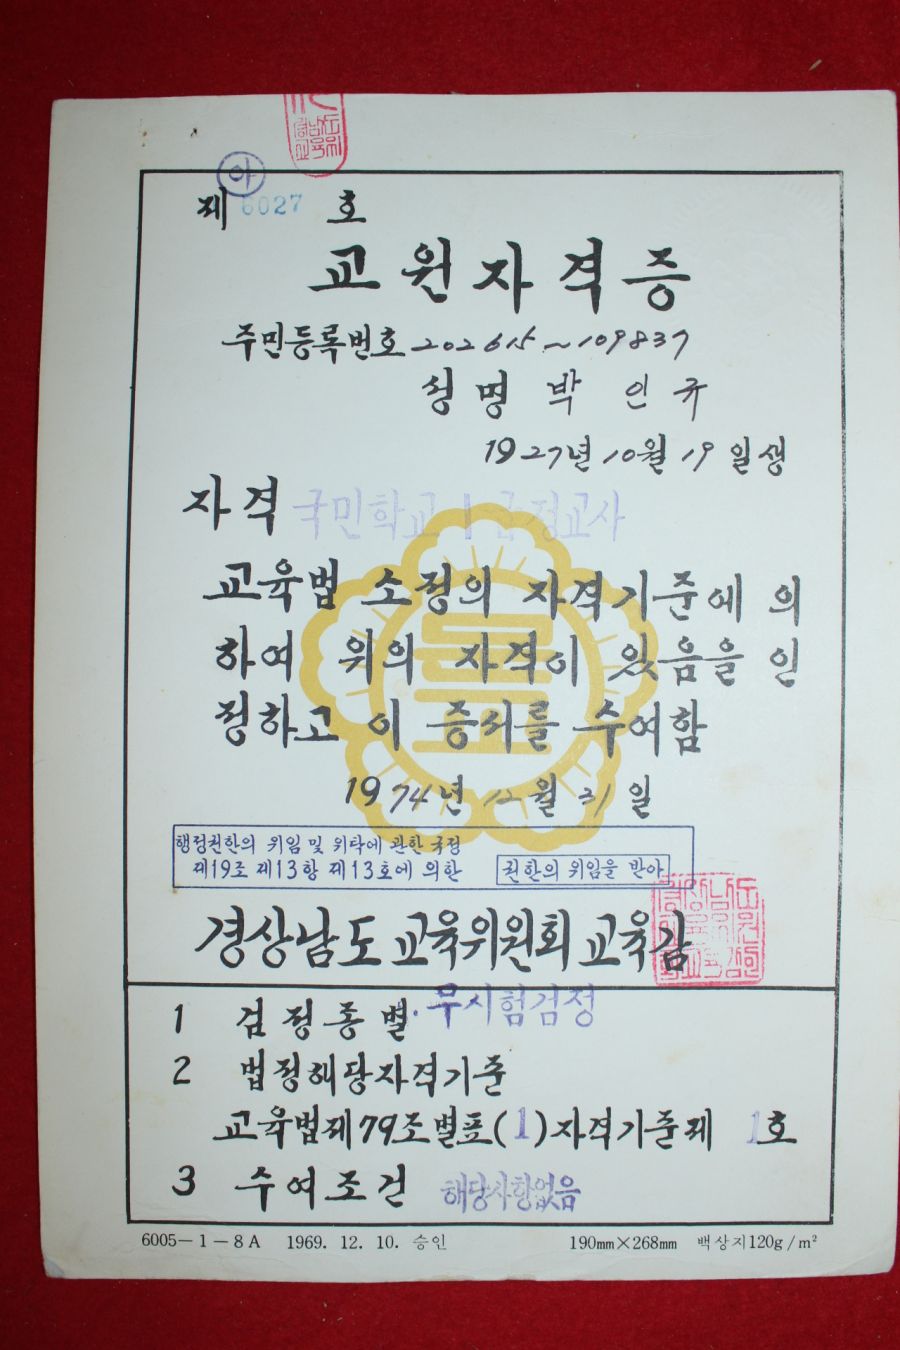 아
제 6027 호
교원자격증
주민등록번호 202615~109837
성명 박인규
1927년 10월 19일생
자격 국민학교 1급정교사
교육법 소정의 자격기준에 의
하여 위의 자격이 있음을 인
정하고 이 증서를 수여함
1974년 12월 31일
행정권한의 위임 및 위탁에 관한 규정
제19조 제13항 제13호에 의한 권한의 위임을 받아
경상남도교육위원회교육감
1 검정종별. 무시험검정
2 법정해당자격기준
교육법제79조별표(1)자격기준제 1호
3 수여조건 해당사항없음
6005-1-8A 1969. 12. 10. 승인 190mm×268mm 백상지120g/m²